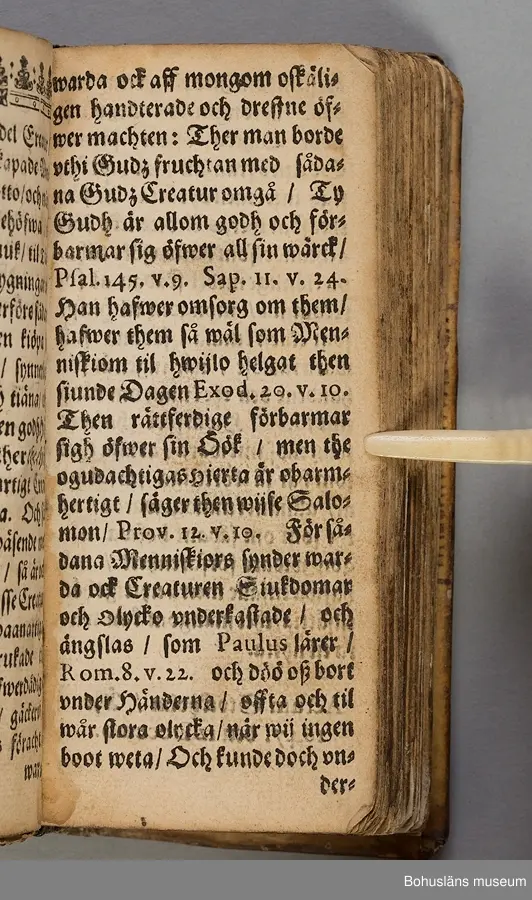 warda ock aff mongom oskäli-
gen handterade och drefne öf-
wer machten: Ther man borde
vthi Gudz fruchtan med såda-
na Gudz Creatur omgå / Ty
Gudh är allom godh och för-
barmar sig öfwer all sin wärck/
Psal. 145. v. 9. Sap. 11. v. 24.
Han hafwer omsorg om them/
hafwer them så wäl som Men-
niskiom til hwijlo helgat then
siunde Dagen Exod. 20. v. 10.
Then rättferdige förbarmar
sigh öfwer sin Öök / men the
ogudachtigas Hierta är obarm-
hertigt / säger then wijse Salo-
mon/ Prov. 12. v. 10. För så-
dana Menniskiors synder war-
da ock Creaturen Siukdomar
och Olycko vnderkastade / och
ängslas / som Paulus lärer /
Rom. 8. v. 22. och döö oß bort
vnder Händerna / offta och til
wår stora olycka / när wij ingen
boot weta / Och kunde doch vn-
der-
Bohusläns museum